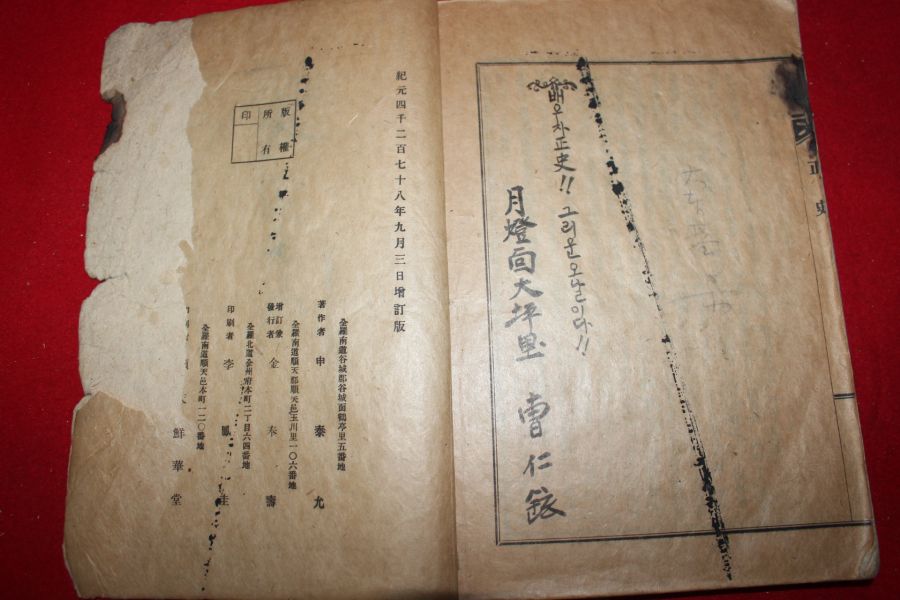 正史
배우자正史!! 그리운오날이다!!
月燈面大坪里 曺仁鉉
紀元四千二百七十八年九月三日增訂版
版權
所有
印
全羅南道谷城郡谷城面鶴亭里五番地
著作者 申泰允
全羅南道順天郡順天邑玉川里一〇六番地
增訂兼
發行者 金奉壽
全羅北道全州府本町二丁目六四番地
印刷者 李鳳圭
全羅南道順天邑本町一二〇番地
鮮華堂